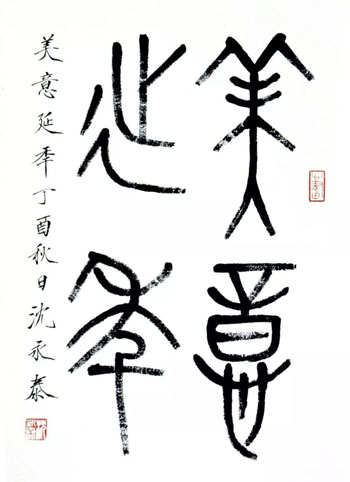 美意
延年
美意延年丁酉秋日沈永泰